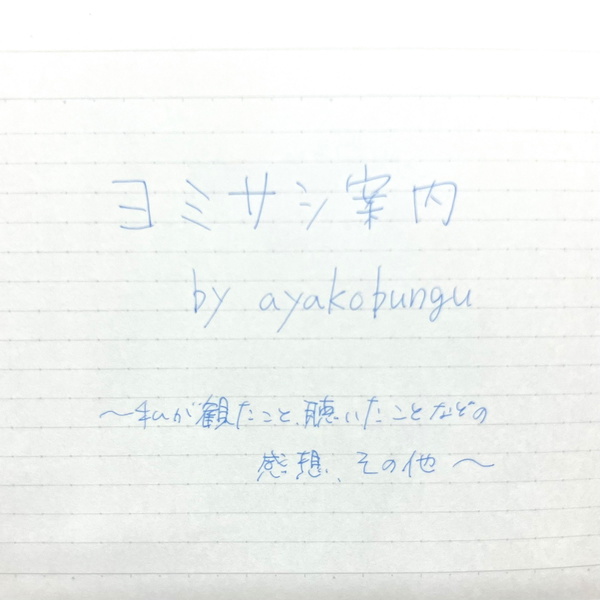 ヨミサシ案内
by ayakobungu
〜私が観たこと、聴いたことなどの
感想、その他〜